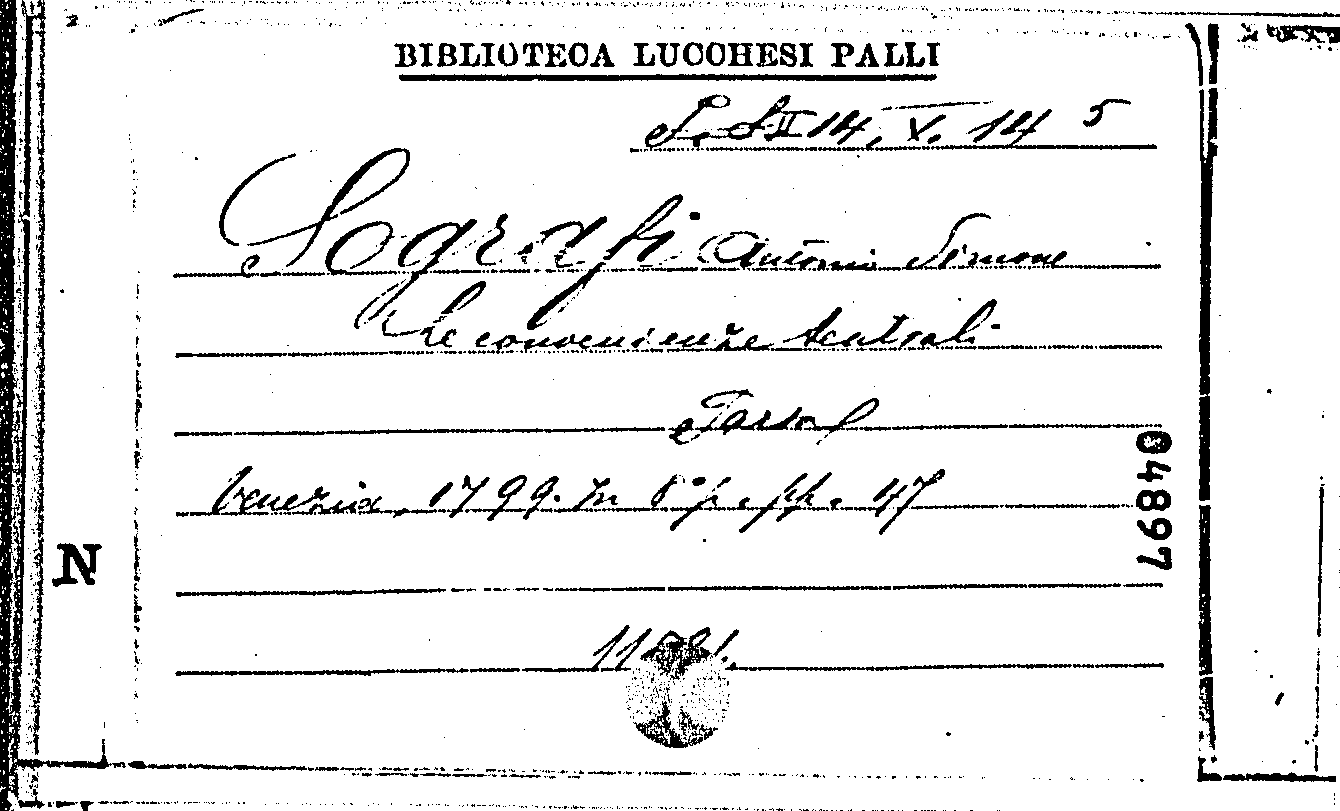 BIBLIOTECA LUCCHESI PALLI
S. S II 14. V. 14 5
Sografi Antonio Simone
Le convenienze teatrali
Farsa
Venezia, 1799. In 8° p. pp. 47
04897
N